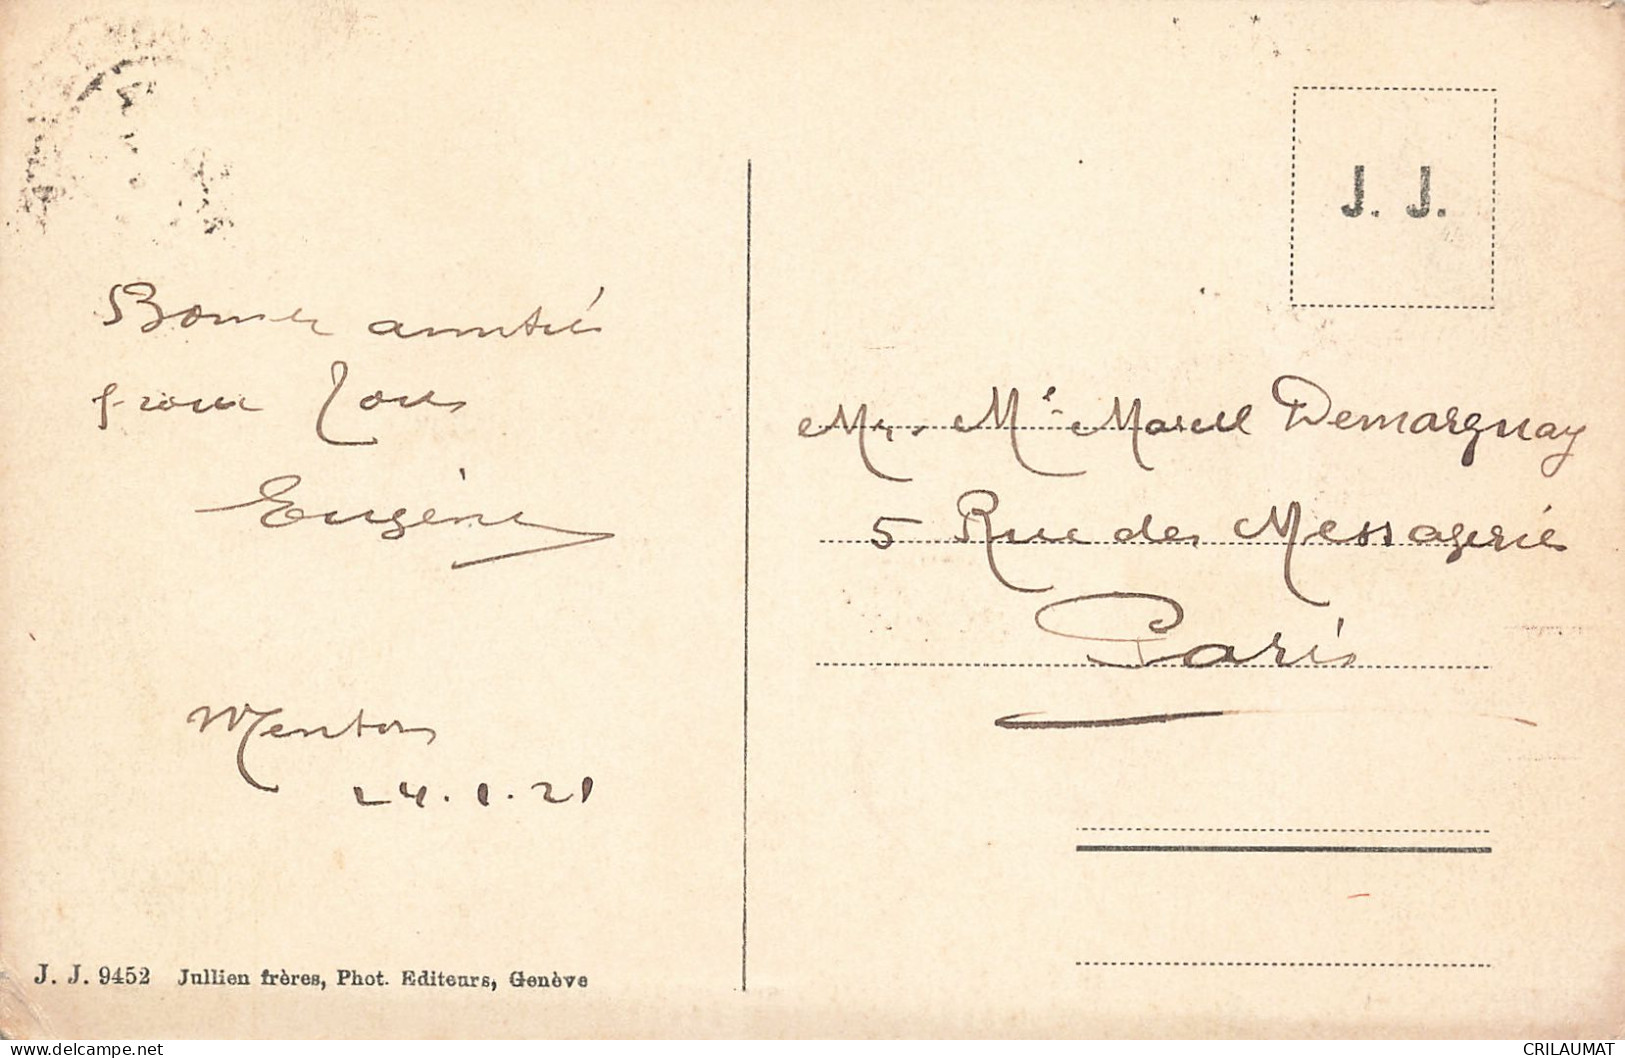 Bonnes amitiés
pour tous
Eugène
Menton
24.1.21
J. J. 9452 Jullien frères, Phot. Editeurs, Genève
J. J.
Mr. Me Marcel Demarquay
5 Rue des Messagerie
Paris
www.delcampe.net
CRILAUMAT